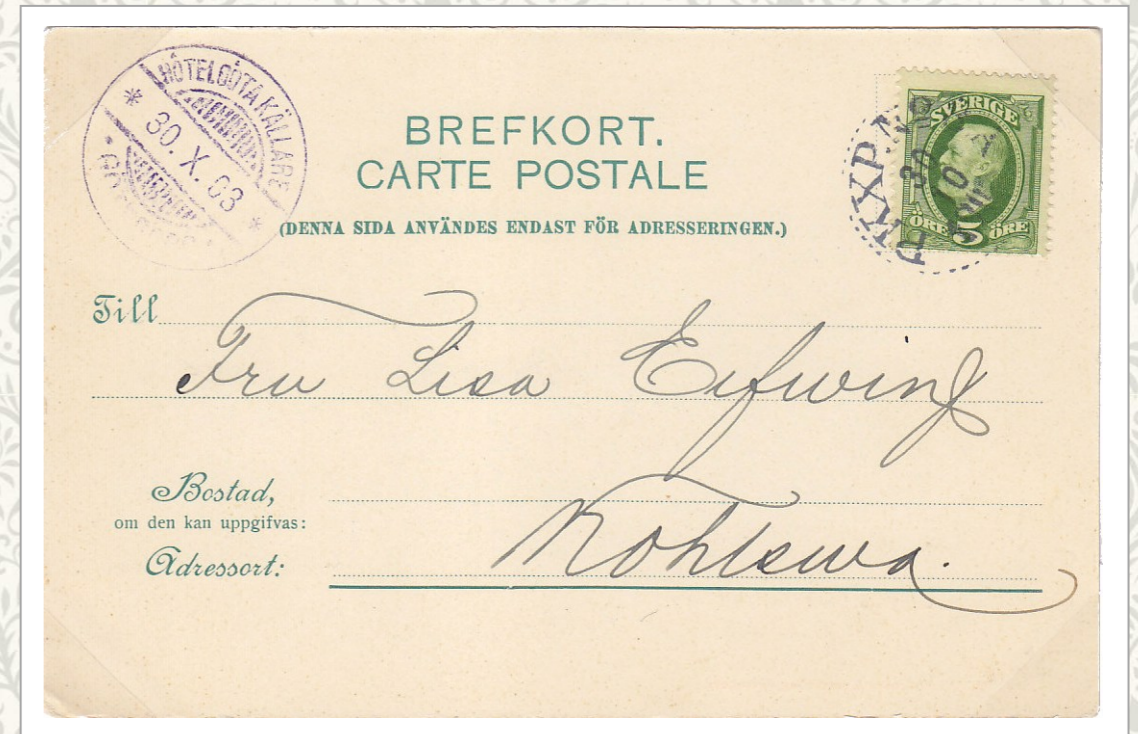 HÔTEL GÖTA KÄLLARE
* 30. X. 03 *
BREFKORT.
CARTE POSTALE
(DENNA SIDA ANVÄNDES ENDAST FÖR ADRESSERINGEN.)
SVERIGE
ÖRE 5 ÖRE
PKXP
30
10
Till
Fru Lisa Eifwing
Bostad,
om den kan uppgifvas:
Adressort:
Kohlswa.